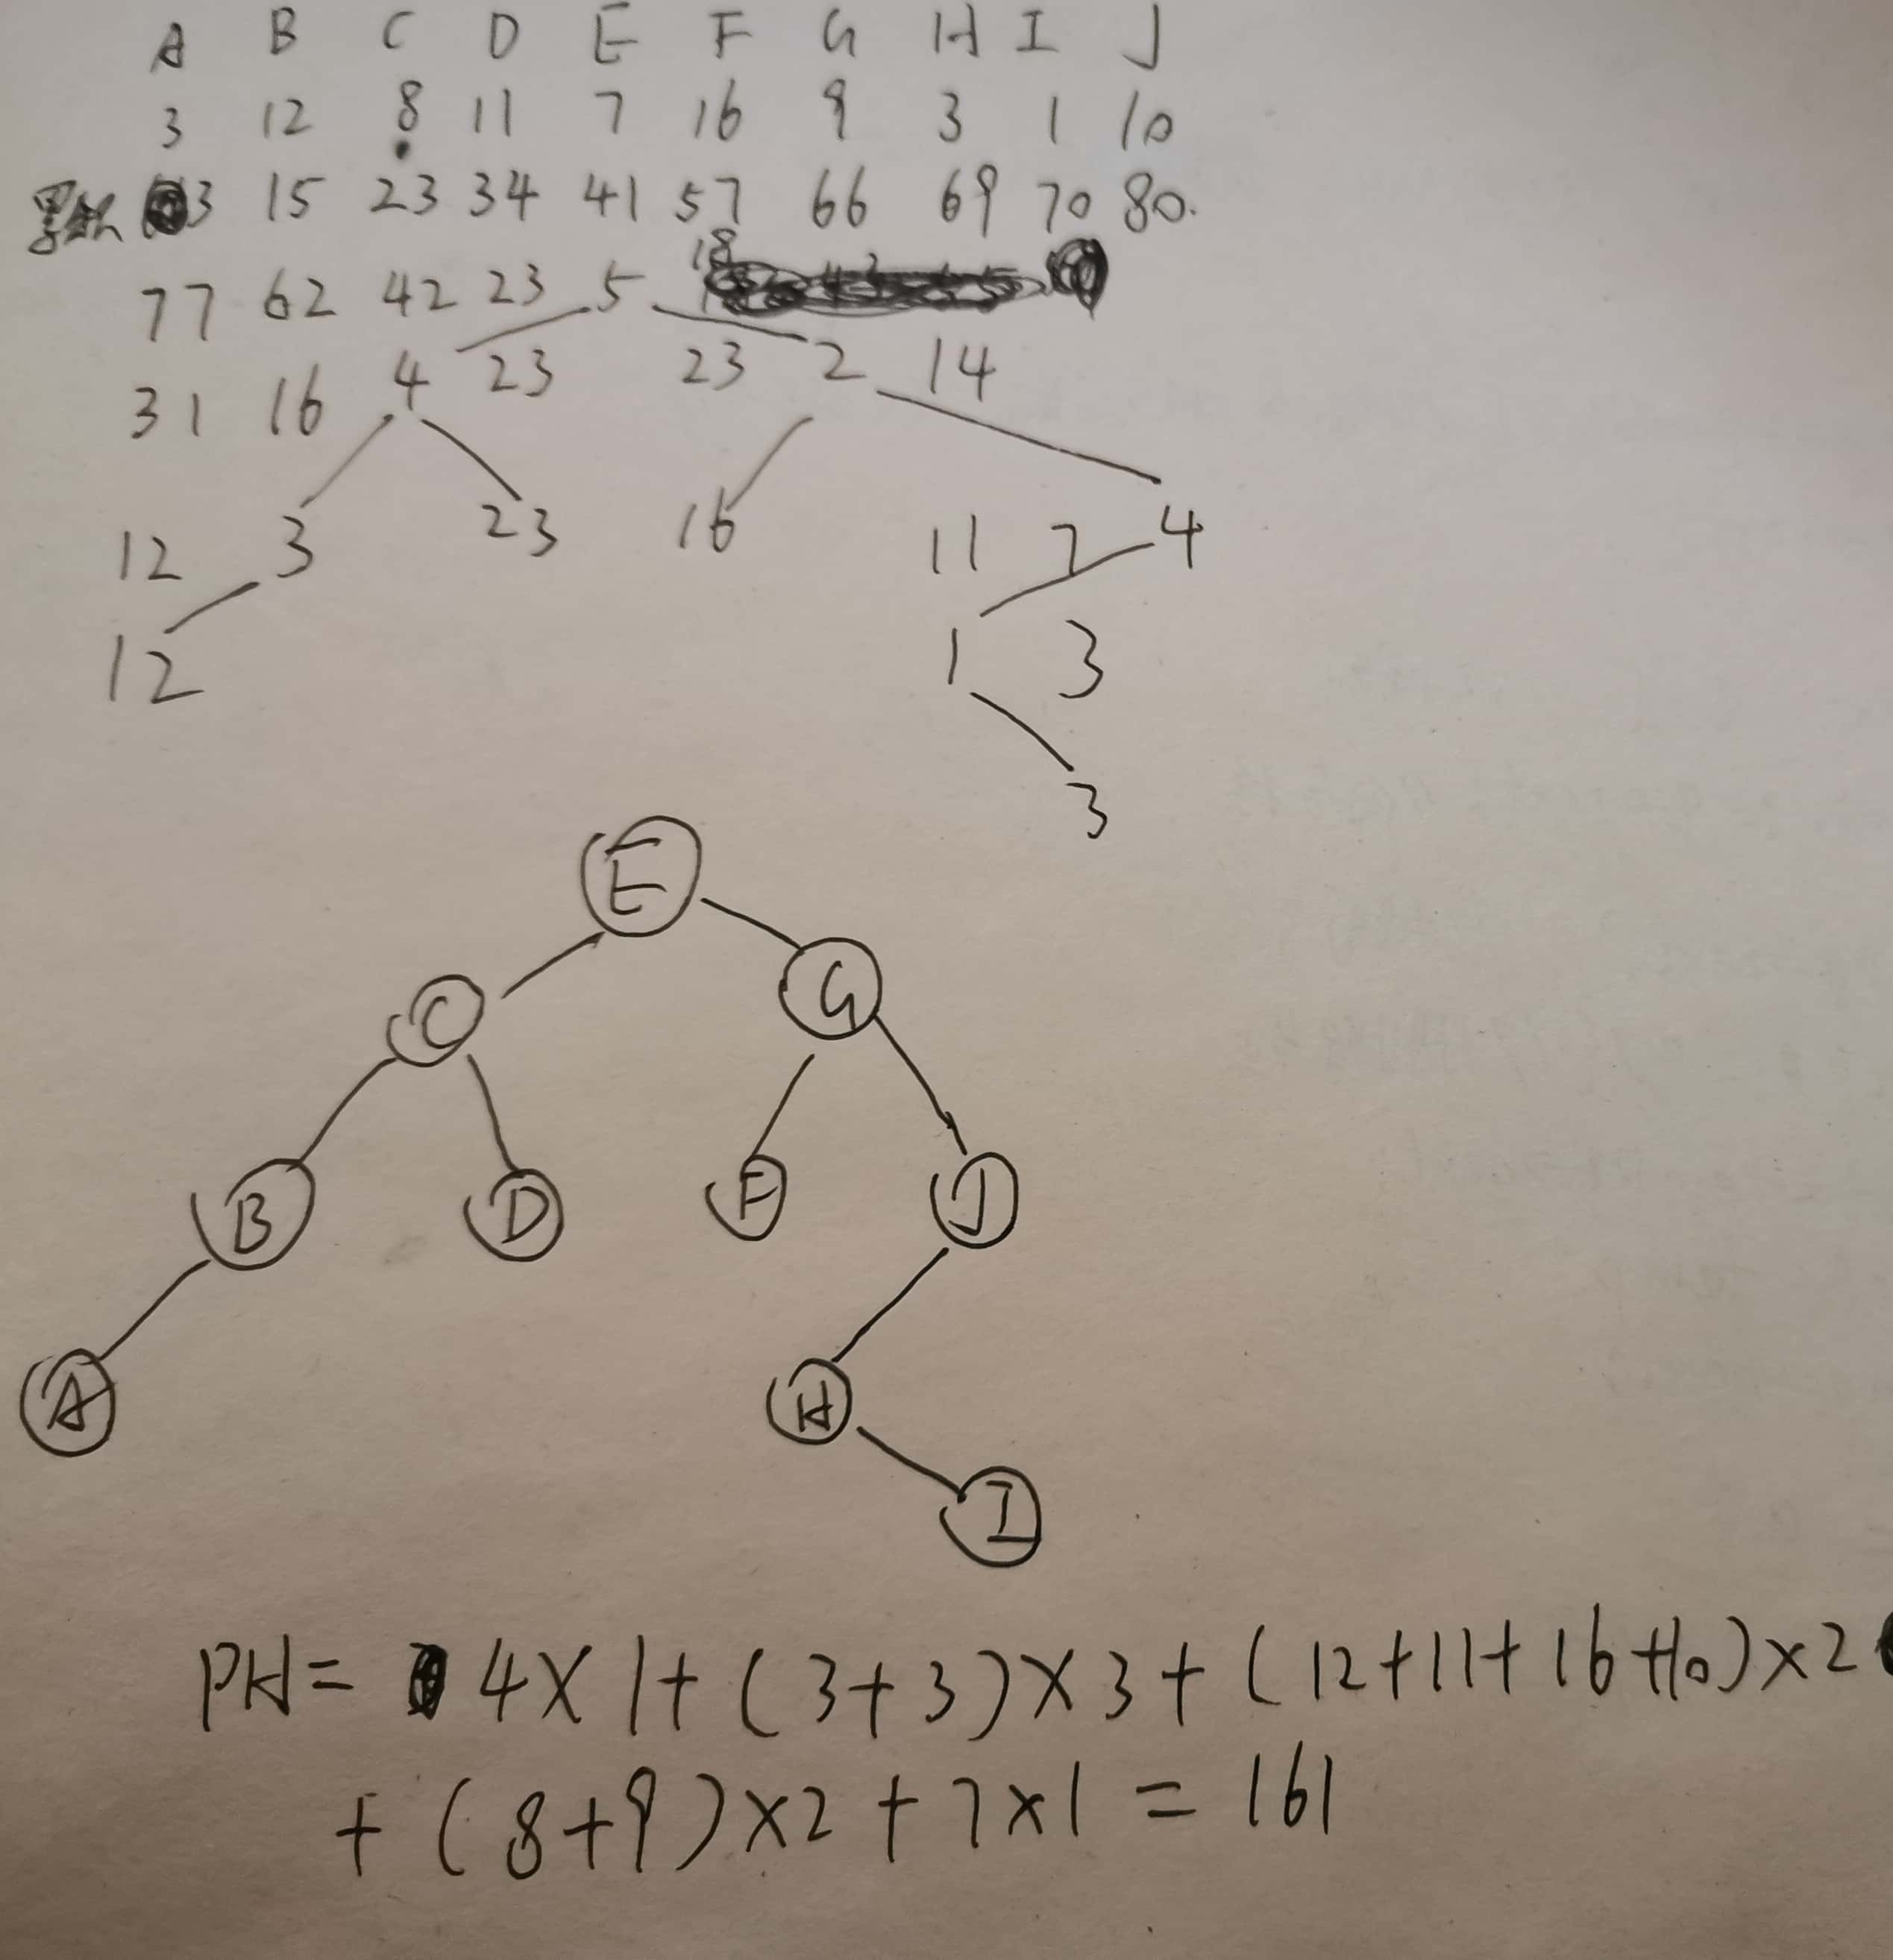 A B C D E F G H I J
3 12 8 11 7 16 9 3 1 10
累加 3 15 23 34 41 57 66 69 70 80.
77 62 42 23 5 18
31 16 4 23 23 2 14
12 3 23 16 11 7 4
12 1 3
3
E
C G
B D F J
A H
I
PH= 4×1+(3+3)×3+(12+11+16+10)×2
+(8+9)×2+7×1=161